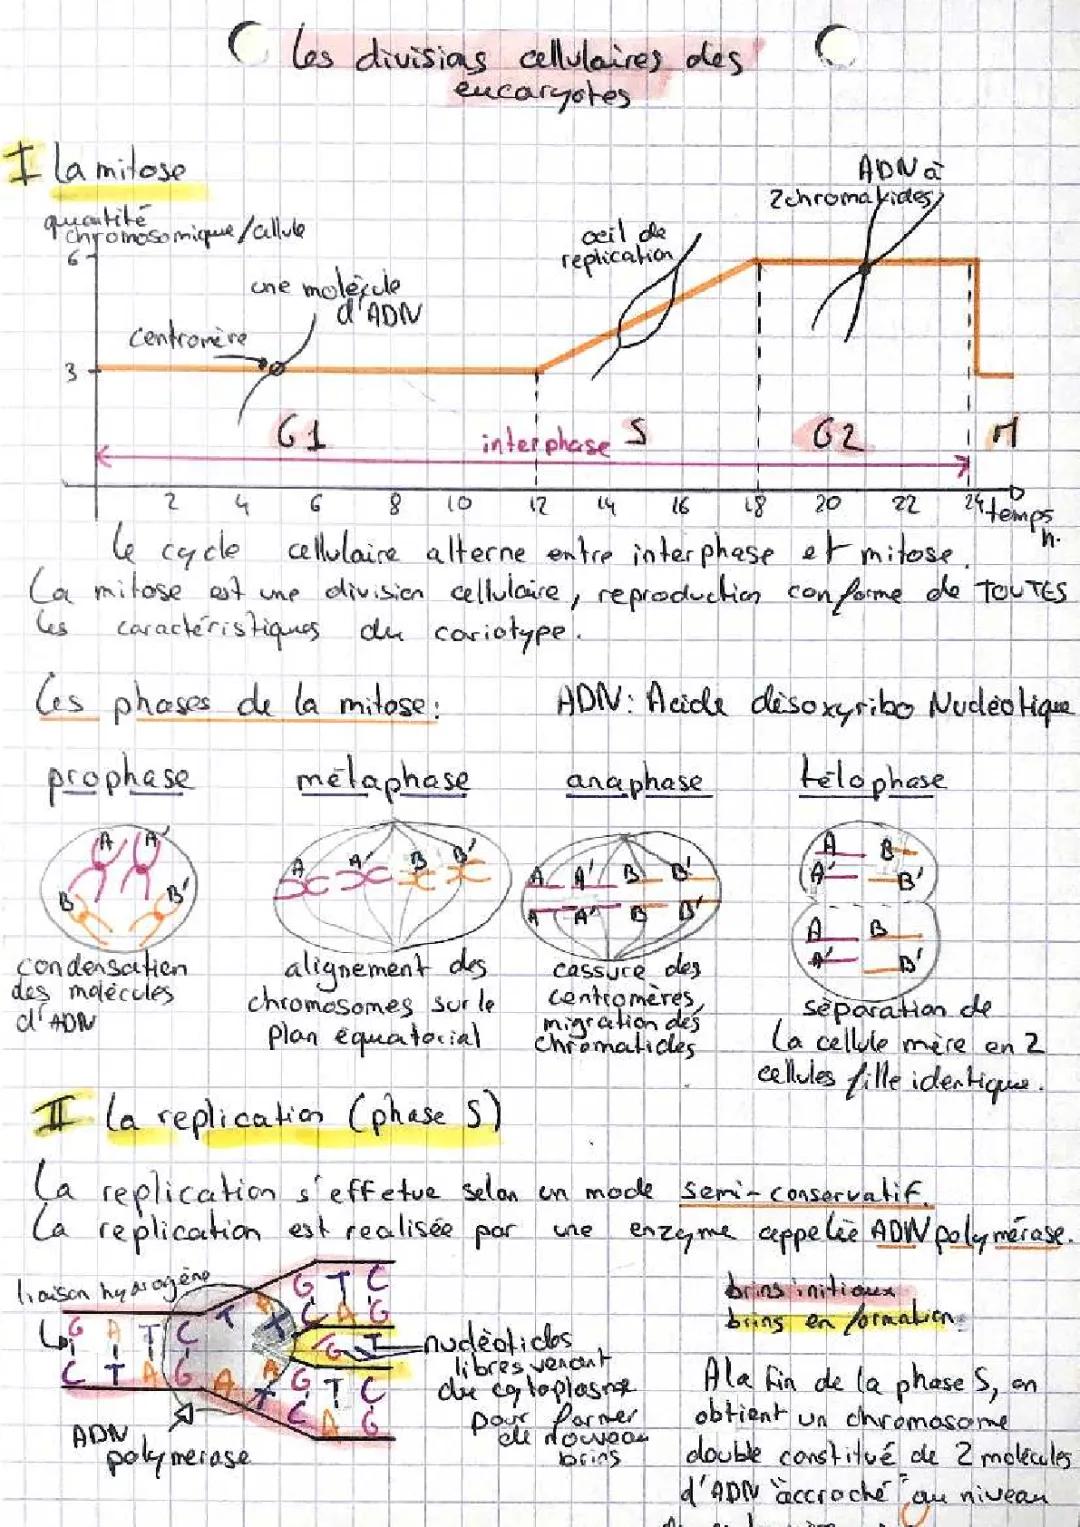 Les divisions cellulaires des
eucaryotes
I La mitose
quantité
chromosomique/cellule
6
3
centromère
une molécule
d'ADN
oeil de
replication
ADN à
2 chromatides
G1
interphase
S
G2
M
2 4 6 8 10 12 14 16 18 20 22 24 temps
h.
Le cycle cellulaire alterne entre interphase et mitose.
La mitose est une division cellulaire, reproduction conforme de TOUTES
les caractéristiques du cariotype.
Les phases de la mitose:
ADN: Acide désoxyribo Nucléotique
prophase métaphase anaphase télophase
A A'
B B'
A A' B B'
A A' B B'
A A' B B'
A B
A' B'
A B
A' B'
condensation
des molécules
d'ADN
alignement des
chromosomes sur le
plan équatorial
cassure des
centromères,
migration des
chromatides
séparation de
la cellule mère en 2
cellules fille identique.
II La replication (phase S)
La replication s'effetue selon un mode semi-conservatif.
La replication est realisée par une enzyme appelée ADN polymérase.
liaison hydrogène
G T C
C A G
G A T C T
C T A G A
G T C
C A G
ADN
polymerase
nucléotides
libres venant
du cytoplasme
pour former
de nouveau
brins
brins initiaux
brins en formation
A la fin de la phase S, on
obtient un chromosome
double constitué de 2 molécules
d'ADN "accroché" au niveau